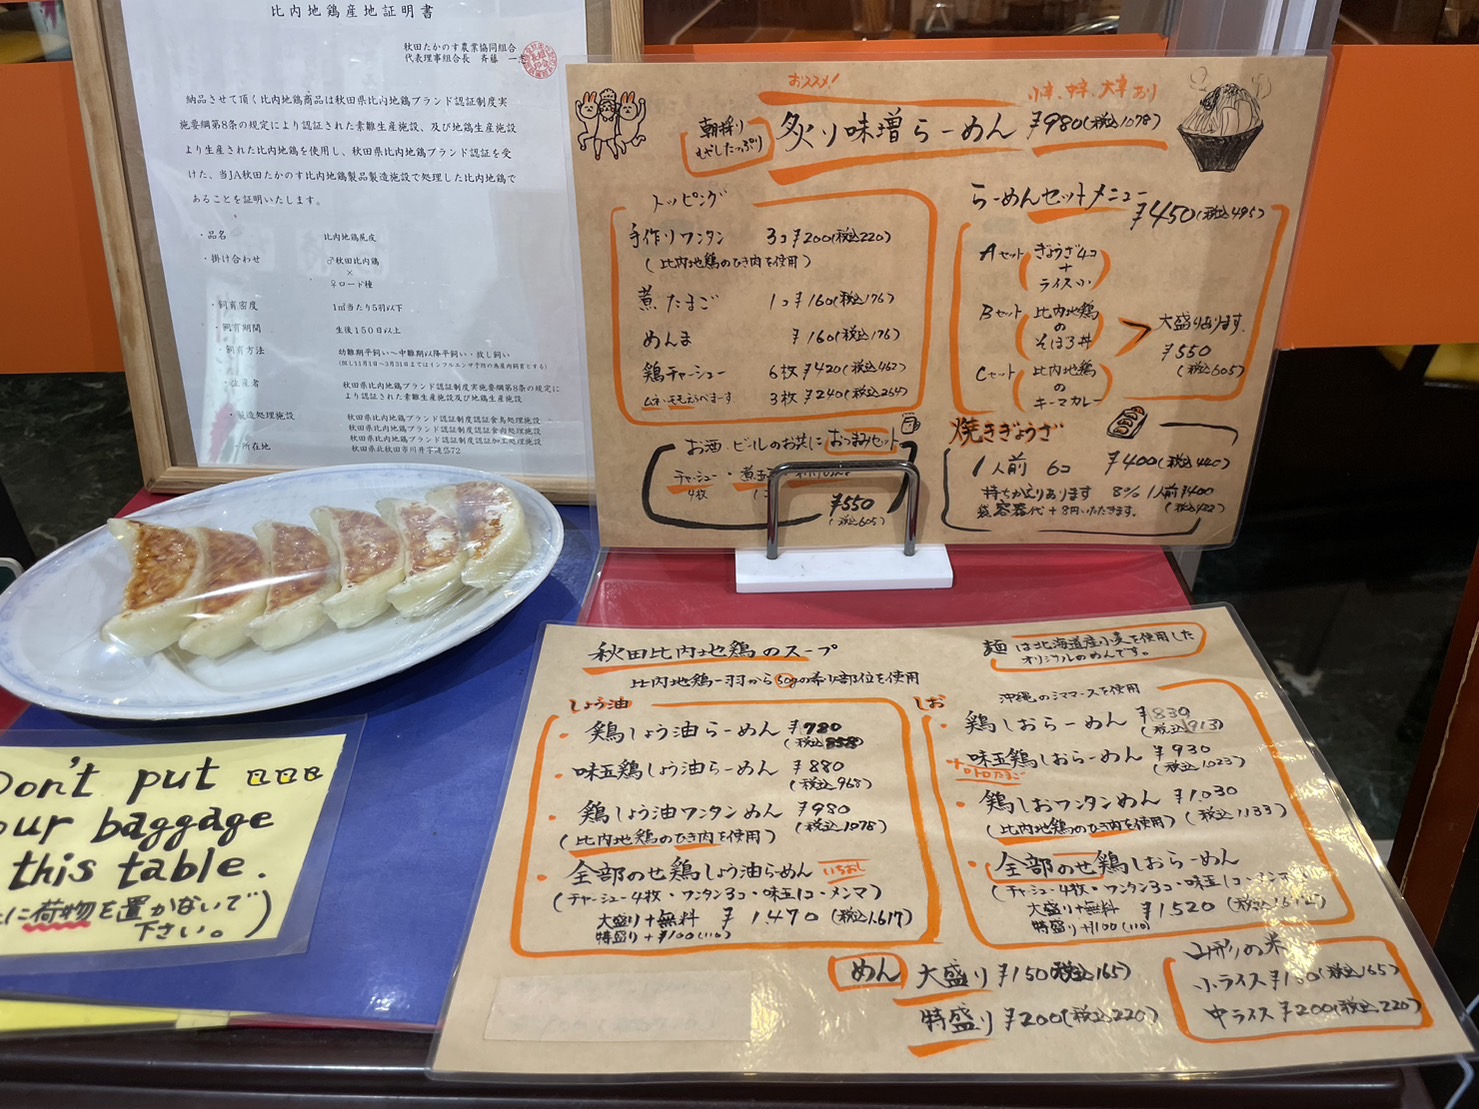 比内地鶏産地証明書
秋田たかのす農業協同組合
代表理事組合長 斉藤 一
納品させて頂く比内地鶏商品は秋田県比内地鶏ブランド認証制度実
施要綱第8条の規定により認証された素雛生産施設、及び地鶏生産施設
より生産された比内地鶏を使用し、秋田県比内地鶏ブランド認証を受
けた、当JA秋田たかのす比内地鶏製品製造施設で処理した比内地鶏で
あることを証明いたします。
・品名 比内地鶏尻皮
・掛け合わせ ♂秋田比内鶏
×
♀ロード種
・飼育密度 1㎡当たり5羽以下
・飼育期間 生後150日以上
・飼育方法 幼雛期平飼い～中雛期以降平飼い・放し飼い
(但し11月1日～3月31日まではインフルエンザ予防の為屋内飼育とする)
・生産者 秋田県比内地鶏ブランド認証制度実施要綱第8条の規定に
より認証された素雛生産施設及び地鶏生産施設
・製造処理施設 秋田県比内地鶏ブランド認証制度認証食鳥処理施設
秋田県比内地鶏ブランド認証制度認証食肉処理施設
秋田県比内地鶏ブランド認証制度認証加工処理施設
・所在地 秋田県北秋田市川井字連岱72
おススメ!
小辛、中辛、大辛あり
朝採り
もやしたっぷり
炙り味増らーめん ¥980(税込1078)
トッピング
手作りワンタン 3コ¥200(税込220)
(比内地鶏のひき肉を使用)
煮たまご 1コ¥160(税込176)
めんま ¥160(税込176)
鶏チャーシュー 6枚¥420(税込462)
ムネ・モモえらべます 3枚¥240(税込264)
お酒、ビールのお共に おつまみセット
チャーシュー・煮玉
4枚
¥550
(税込605)
らーめんセットメニュー
¥450(税込495)
Aセット ぎょうざ4コ
+
ライス小
Bセット 比内地鶏
の
そぼろ丼
Cセット 比内地鶏
の
キーマカレー
大盛りあります。
¥550
(税込605)
焼きぎょうざ
1人前 6コ ¥400(税込440)
持ちかえりあります 8% 1人前¥400
袋、容器代+8円いただきます。 (税込432)
秋田比内地鶏のスープ
比内地鶏一羽から50gの希少部位を使用
しょう油
・鶏しょう油らーめん ¥780
(税込858)
・味玉鶏しょう油らーめん ¥880
(税込968)
・鶏しょう油ワンタンめん ¥980
(比内地鶏のひき肉を使用) (税込1078)
・全部のせ鶏しょう油らーめん いちおし
(チャーシュー4枚・ワンタン3コ・味玉1コ・メンマ)
大盛り+無料 ¥1.470 (税込1.617)
特盛り+¥100(110)
麺は北海道産小麦を使用した
オリジナルのめんです。
沖縄のシママースを使用
しお
・鶏しおらーめん ¥830
(税込913)
味玉鶏しおらーめん ¥930
(税込1.023)
・鶏しおワンタンめん ¥1.030
(比内地鶏のひき肉を使用) (税込1.133)
・全部のせ鶏しおらーめん
(チャーシュー4枚・ワンタン3コ・味玉1コ・メンマ)
大盛り+無料 ¥1.520
特盛り+¥100(110)
めん 大盛り ¥150(税込165)
特盛り ¥200(税込220)
山形の米
小ライス
中ライス ¥200(税込220)
Don't put
our baggage
this table.
に荷物を置かないで
下さい。)